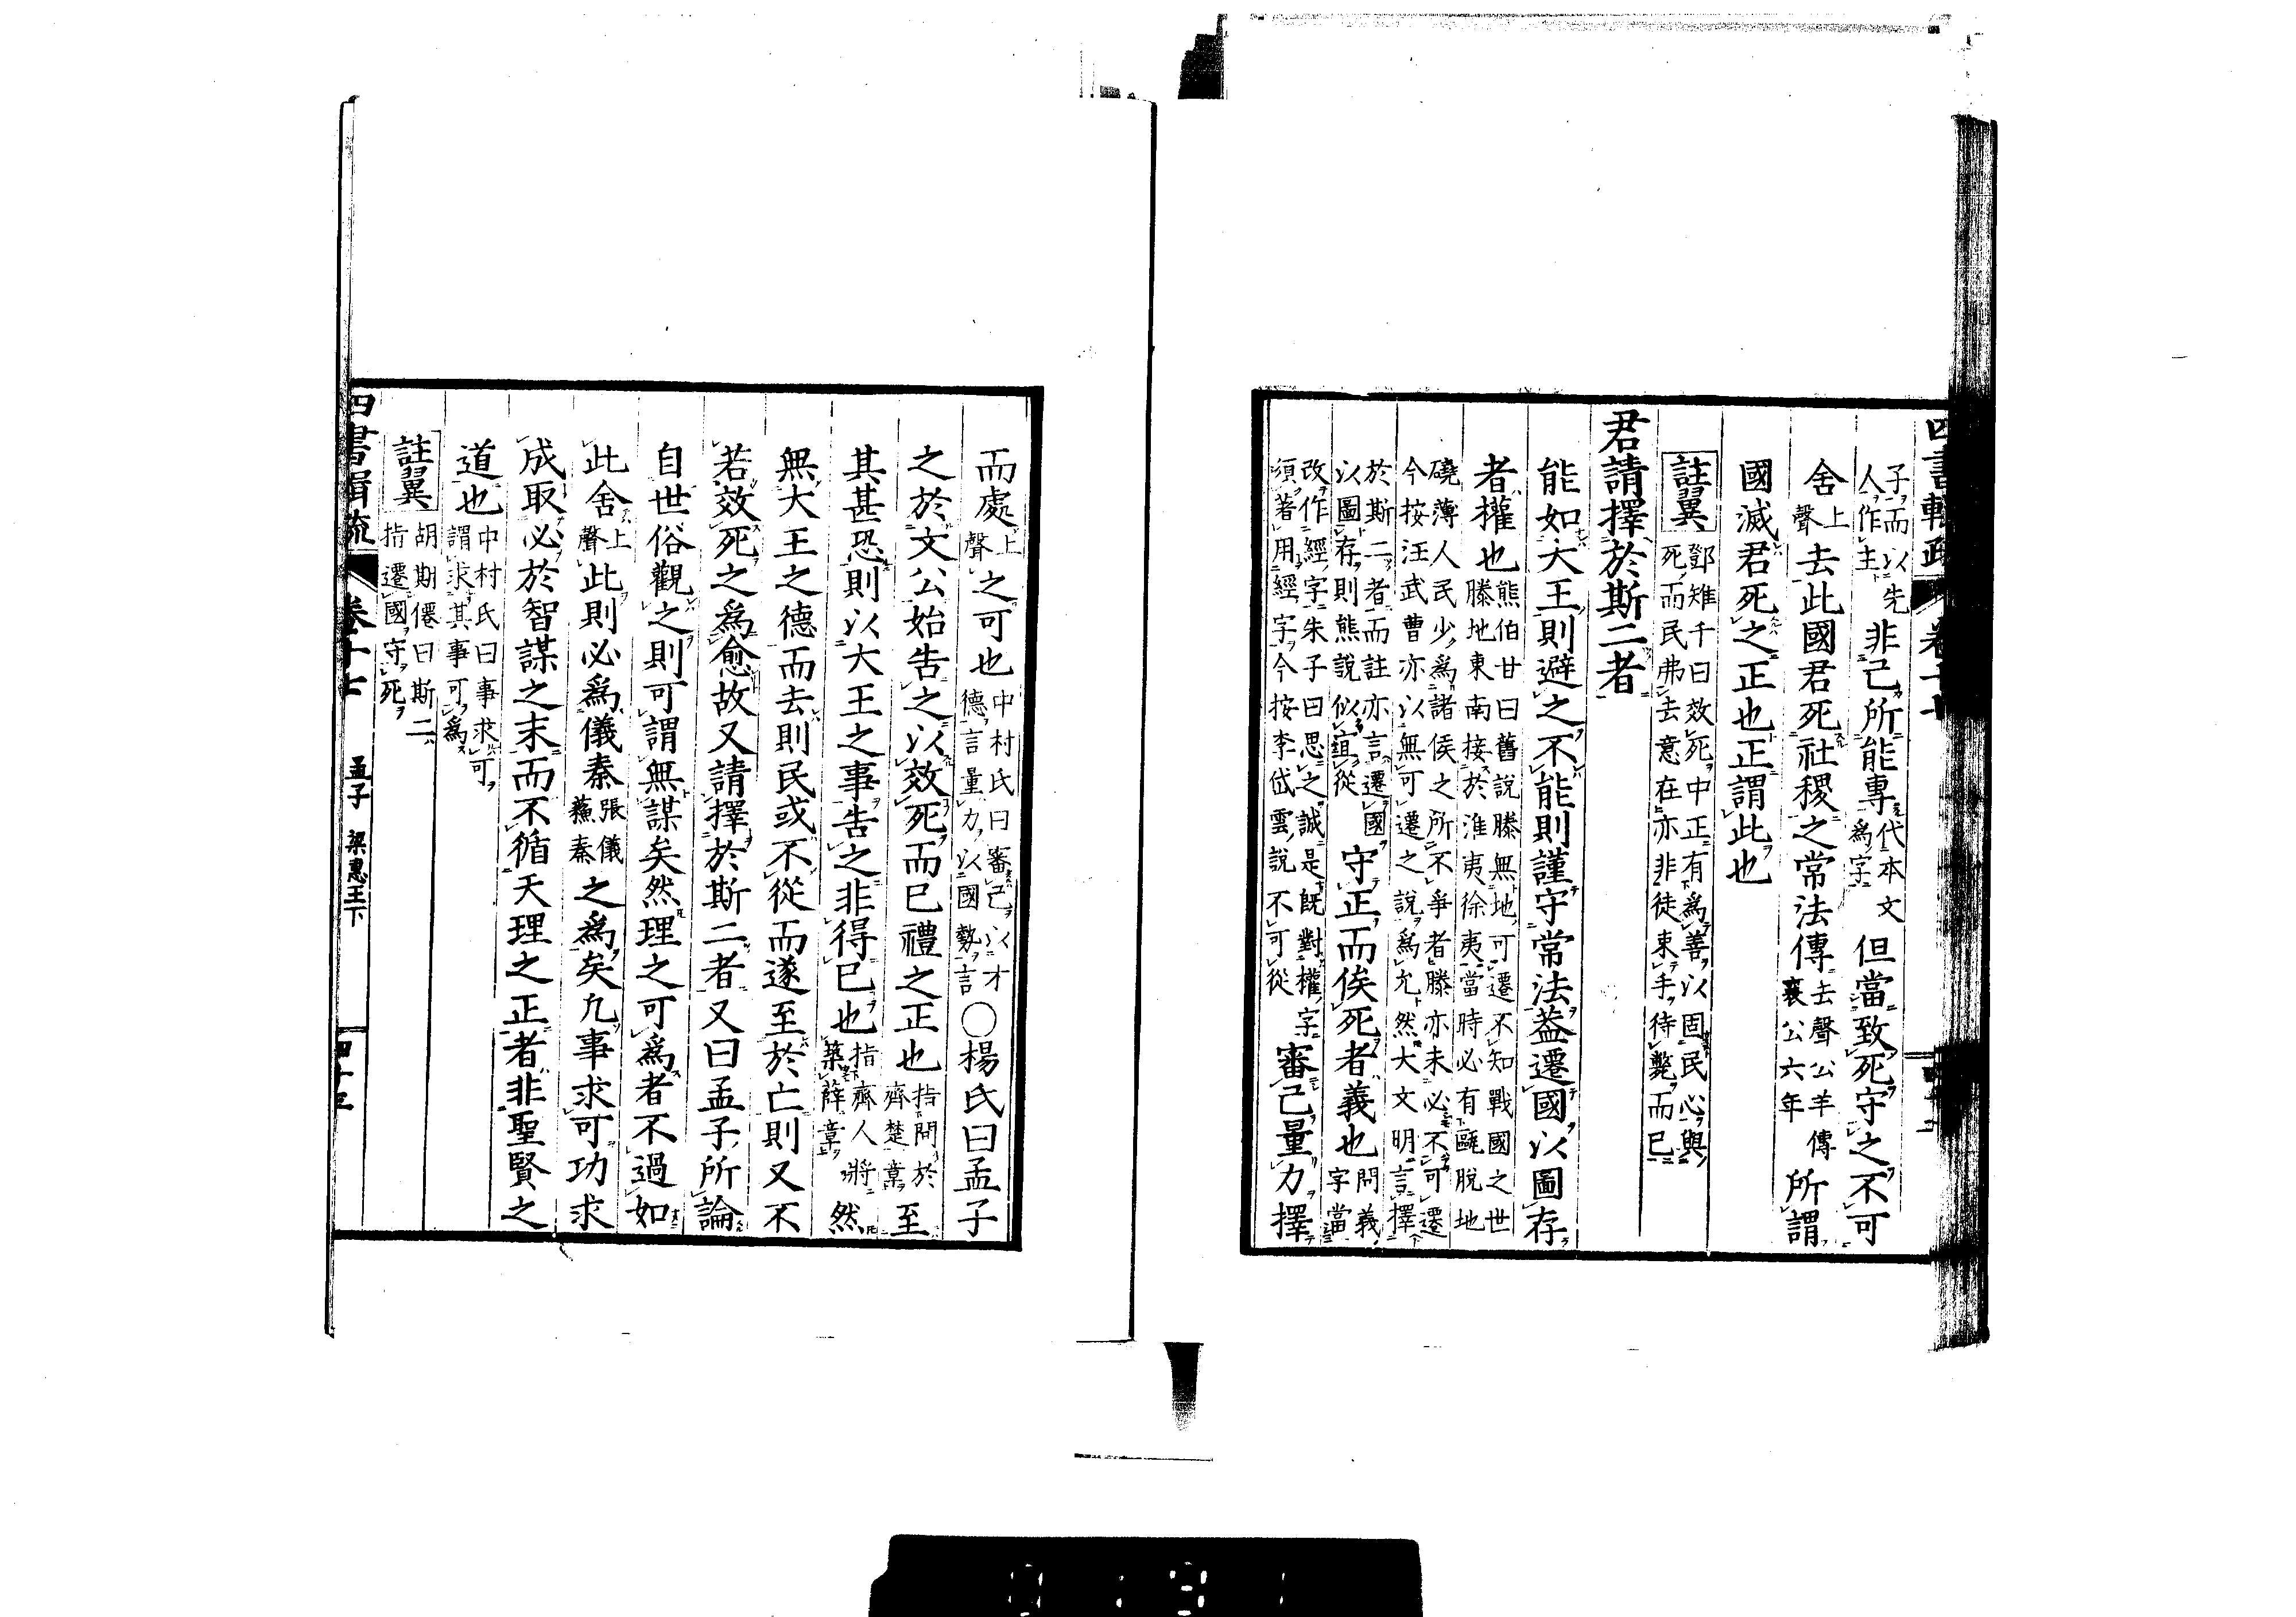 子而以先
人作主
非己所能專
代本文
爲字
但當致死守之不可
舍
上
聲
去此國君死社稷之常法傳
去聲公羊傳
襄公六年
所謂
國滅君死之正也正謂此也
註翼
鄧雉千曰效死中正有爲善以固民心與
死而民弗去意在亦非徒束手待斃而已
君請擇於斯二者
能如大王則避之不能則謹守常法蓋遷國以圖存
者權也
熊伯甘曰舊說滕無地可遷不知戰國之世
滕地東南接於淮夷徐夷當時必有甌脫地
磽薄人民少爲諸侯之所不爭者滕亦未必不可遷
今按汪武曹亦以無可遷之說爲允然大文明言擇
於斯二者而註亦言遷國
以圖存則熊說似宜從
守正而俟死者義也
問義
字當
改作經字朱子曰思之誠是旣對權字
須著用經字今按李岱雲說不可從
審己量力擇
而處
上
聲
之可也
中村氏曰審己以才
德言量力以國勢言
○楊氏曰孟子
之於文公始告之以效死而已禮之正也
指問於
齊楚章
至
其甚恐則以大王之事告之非得已也
指齊人將
築薛章
然
無大王之德而去則民或不從而遂至於亡則又不
若效死之爲愈故又請擇於斯二者又曰孟子所論
自世俗觀之則可謂無謀矣然理之可爲者不過如
此舍
上
聲
此則必爲儀秦
張儀
蘇秦
之爲矣凡事求可功求
成取必於智謀之末而不循天理之正者非聖賢之
道也
中村氏曰事求可
謂求其事可爲
註翼
胡期僊曰斯二
指遷國守死
四書輯疏 卷十七 孟子 梁惠王下